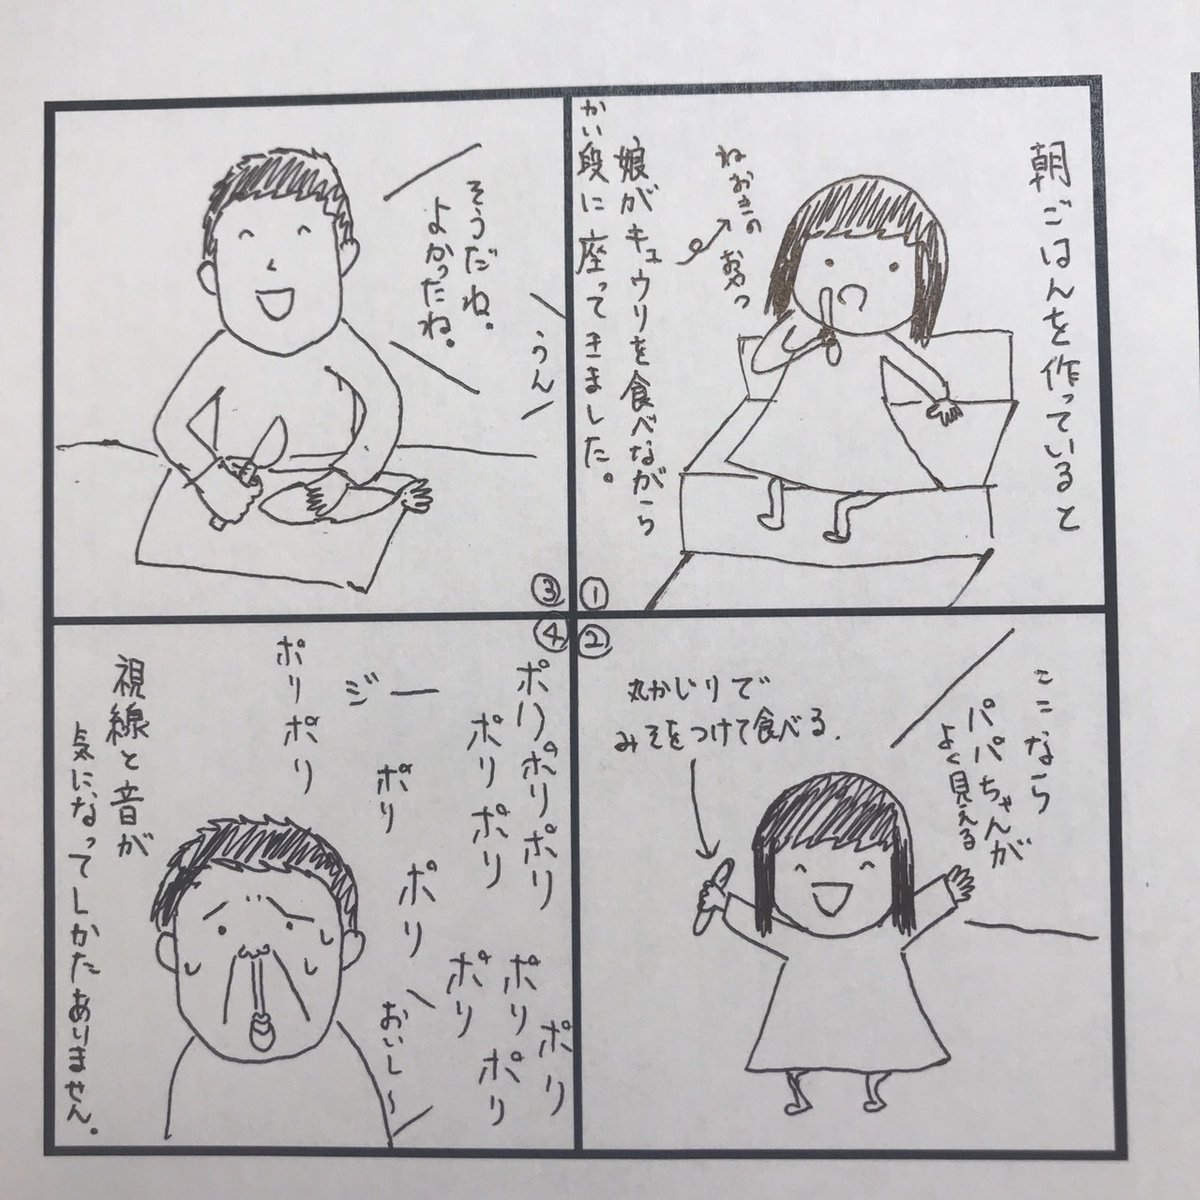 朝ごはんを作っていると
娘がキュウリを食べながら
かい段に座ってきました。
ねおきの
おやつ
①
ここなら
パパちゃんが
よく見える
丸かじりで
みそをつけて食べる.
②
そうだね。
よかったね。
うん
③
ポリポリポリ
ポリポリ
ポリ
ジー
ポリポリ
ポリ
ポリ
ポリ
ポリポリ
ポリ
おいし〜
視線と音が
気になってしかたありません。
④